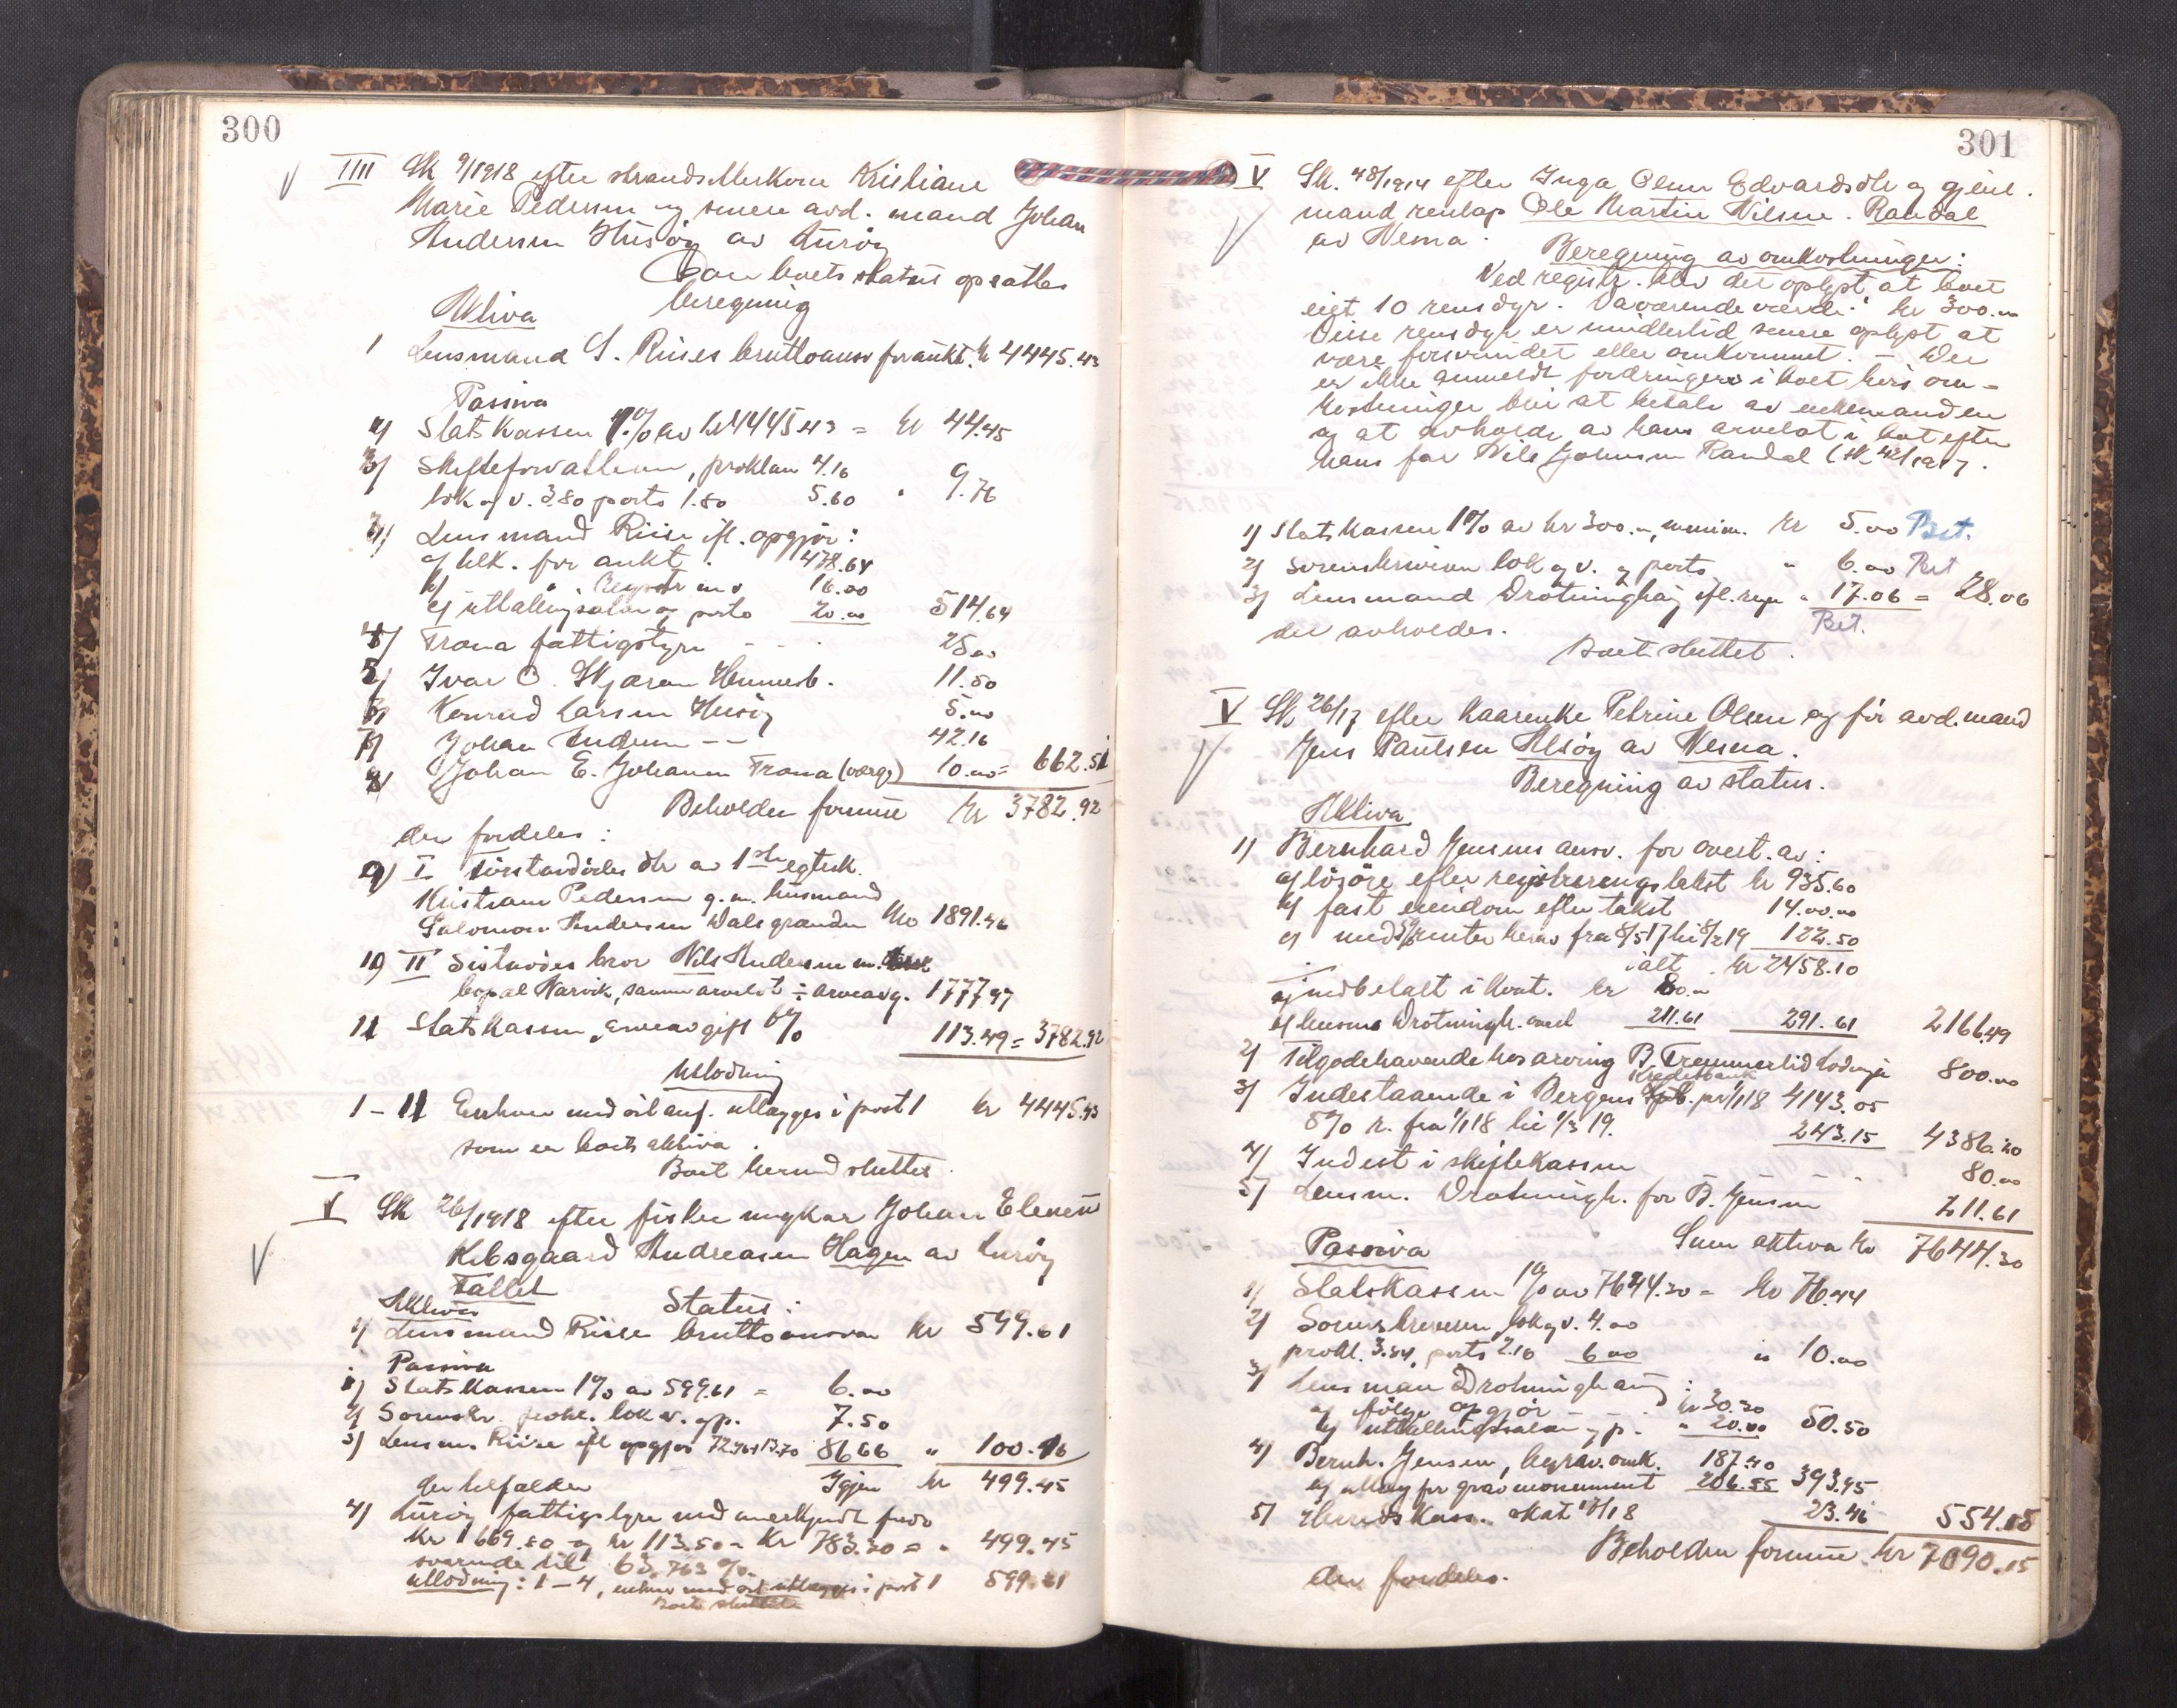 300
IIII Sk 9/1918 efter strandsitterkone Kristiane
Marie Pedersen og senere avd. mand Johan
Andersen Husöy av Luröy
Over boets status opsattes
beregning
Aktiva
1 Lensmand S. Riises bruttoansv for aukt. kr 4445.43
Passiva
1) Statskassen 1% av kr 4445.43 = kr 44.45
2) Skifteforvalteren, proklam 4.16
lok og v. 3.80 porto 1.80 5.60 " 9.76
3) Lensmand Riise ifl. opgjör:
a) bek. for aukt. 478.64
b) " " Registr m v 16.00
c) uttællingssalær og porto 20.00 514.64
4) Træna fattigstyre - - - 25.00
5) Ivar C. Skjæran Hemnesb. 11.50
6) Konrad Larsen Husöy 5.00
7) Johan Andersen - - 42.16
8) Johan E. Johansen Træna (værge) 10.00 = 662.51
Beholden formue kr 3782.92
der fordeles:
9) I förstavdödes dtr av 1ste egtesk.
Kristiane Pedersen g.m. husmand
Salomon Andersen Dalsgrenden kr 1891.46
10) II Sistavdödes bror Nils Andersen m.
bopæl Narvik, samme arvelot ÷ arveavg. 1777.97
11 Statskassen, arveavgift 6% 113.49 = 3782.92
Utlodning
1 - 11 Enhver med sit anf. utlægges i post 1 kr 4445.43
som er boets aktiva.
Boet hermed sluttet.
V Sk 26/1918 efter fisker ungkar Johan Elenius
Kibsgaard Andreasen Hagen av Luröy
Fallit
Aktiva Status:
1) Lensmand Riise bruttoansvar kr 599.61
Passiva
1) Statskassen 1% av 599.61 = 6.00
2) Sorenskr. prokl. lok v. og p. 7.50
3) Lensm Riise ifl opgjör 72.96+13.70 86.66 " 100.16
Igjen kr 499.45
der tilfalder
4) Luröy fattigstyre med anerkjendt fordr
kr 669.80 og kr 113.50 = kr 783.30 = " 499.45
svarende til 63.763 %.
Utlodning: 1 - 4, enhver med sit utlægges i post 1 599.61
Boet sluttet
301
V Sk. 48/1914 efter Inga Elen Edvardsdtr og gjenl.
mand renlap Ole Martin Nilsen Randal
av Nesna.
Beregning av omkostninger:
Ved registr. blev det oplyst at boet
eiet 10 rensdyr. Daværende værdi: kr 300.00
Disse rensdyr er imidlertid senere oplyst at
være forsvundet eller omkommet. - Der
er ikke anmeldt fordringer i boet hvis om-
kostninger blir at betale av enkemanden
og at avholde av hans arvelot i boet efter
hans far Nils Johnsen Randal (sk. 42/1917.
1) Statskassen 1% av kr 300.00, minim. kr 5.00 Bet.
2) Sorenskriveren lok og v. og porto " 6.00 Bet
3) Lensmand Drotninghaug ifl. regn " 17.06 = 28.06
der avholdes. Bet.
Boet sluttet.
V Sk 26/17 efter kaarenke Petrine Olsen og för avd. mand
Jens Paulsen Alsöy av Nesna.
Beregning av status.
Aktiva
1) Bernhard Jensens ansv. for overt. av:
a) lösöre efter registreringstakst kr 935.60
b) fast eiendom efter takst 1400.00
c) med 5% renter herav fra 8/5 17 til 8/2 19 122.50
ialt kr 2458.10
÷
a) indbetalt i kont. kr 80.00
b) lensm Drotningh. over 211.61 291.61 2166.49
2) Tilgodehavende hos arving B. Tremmerlid Lodinger 800.00
3) Indestaaende i Bergens Kreditbank pr 1/1 18 4143.05
5% r. fra 1/1 18 til 1/3 19. 243.15 4386.20
4) Indest i skiftekassen 80.00
5) Lensm. Drotningh. for B. Jensen 211.61
Sum aktiva kr 7644.30
Passiva
1) Statskassen 1% av 7644.30 = kr 76.44
2) Sorenskriveren lok og v. 4.00
prokl. 3.84, porto 2.16 6.00 " 10.00
3) Lensman Drotninghaug:
a) ifölge opgjör kr 30.50
b) uttællingssalær og p. " 20.00 50.50
4) Bernh. Jensen, begrav. omk. 187.40
og utlæg for gravmonument 206.55 393.95
5) Herredskass. skat 17/18 23.46 554.15
Beholden formue kr 7090.15
der fordeles.